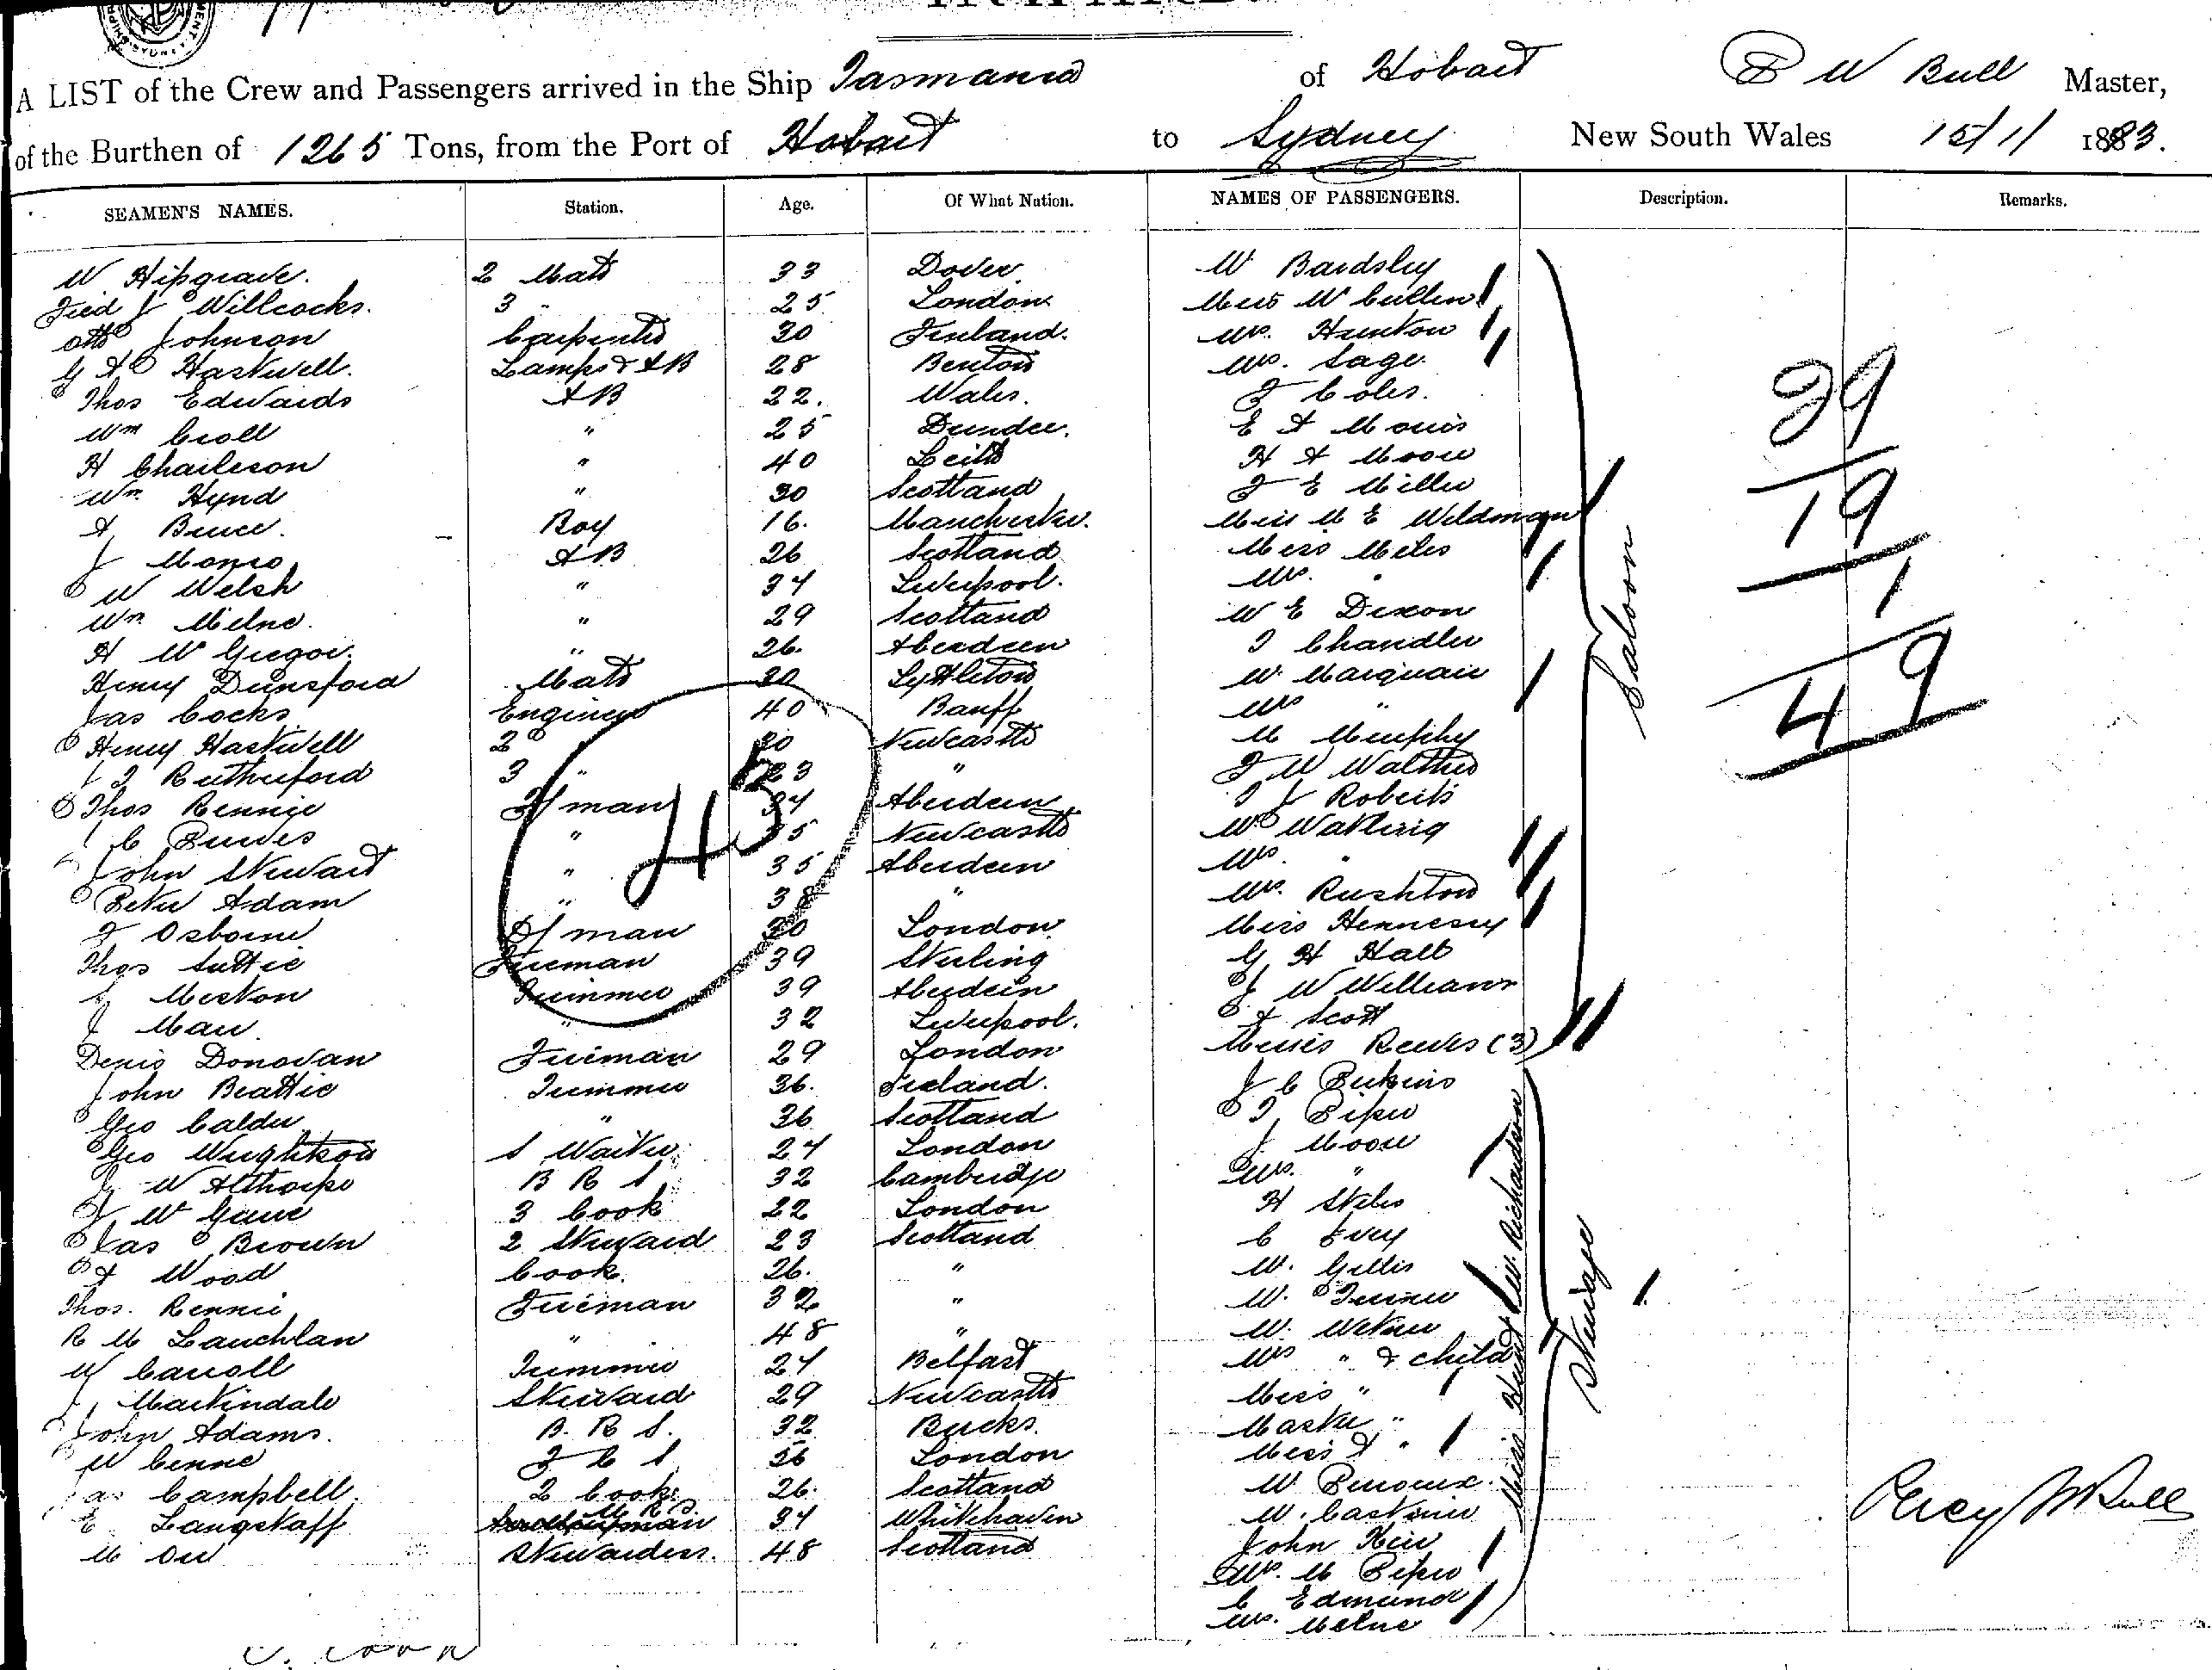 A LIST of the Crew and Passengers arrived in the Ship Tasmania of Hobart P W Bull Master,
of the Burthen of 1265 Tons, from the Port of Hobart to Sydney New South Wales 15/1/ 1883.
SEAMEN'S NAMES. Station. Age. Of What Nation. NAMES OF PASSENGERS. Description. Remarks.
W Hipgrave. 2 Mate 33 Dover W Bardsley
Fred J Willcocks. 3 " 25 London Miss McCullen
Otto Johnson Carpenter 30 Finland. Mrs. Hunton
G A Hastwell. Lamps & AB 28 Benton Mrs. Sage
Thos Edwards AB 22. Wales. F Coles.
Wm Croll " 25 Dundee. E A Morris
H Charleson " 40 Leith H A Moore
Wm. Hynd " 30 Scotland F E Miller
A Bruce. Boy 16. Manchester. Miss M E Wildman
J Monro AB 26 Scotland Miss Miles
W Welsh " 34 Liverpool. Mrs. "
Wm. Milne. " 29 Scotland W E Dixon
H McGregor. " 26. Aberdeen T Chandler
Henry Dunsford Mate 30 Lyttleton Mr. Marquair
Jas Cocks Engineer 40 Banff Mrs "
Henry Hastwell 2 " 30 Newcastle M Murphy
J T Rutherford 3 " 23 " F W Walther
Thos Rennie F/man 34 Aberdeen T J Roberts
J C Purves " 35 Newcastle Mr Watling
John Stewart " 35 Aberdeen Mrs. "
Peter Adam " 38 " Mrs. Rushton
F Osborne D/man 30 London Miss Hennessy
Thos Suttie Fireman 39 Stirling G H Hall
Meston Trimmer 39 Aberdeen J W Williams
J Maw " 32 Liverpool. A Scott
Denis Donovan Fireman 29 London Misses Reeves (3)
John Beattie Trimmer 36. Ireland. J C Perkins
Geo Calder " 36 Scotland T Piper
Geo Wrightson S Waiter 24 London J Moore
W Althorpe B R S 32 Cambridge Mrs. "
J McGaw 3 Cook 22 London H Stiles
Jas Brown 2 Steward 23 Scotland C Ivey
A Wood Cook. 26. " Mr. Gillis
Thos. Rennie Fireman 32 " Mr. Turner
R M Lauchlan " 48 " Mr.
W Carroll Trimmer 24 Belfast Mrs " & child
J Martindale Steward 29 Newcastle Miss "
John Adams. B. R S. 32 Bucks. Master "
W F C S 56 London Miss A "
Jas Campbell 2 Cook. 26. Scotland W
E Langstaff 34 Whitehaven W.
M Orr Stewardess. 48 Scotland John Keir
Mrs. M Piper
C Edmund
Mrs. Milne
Saloon
Steerage
Miss Hunt
Mr. Richardson
43
29
19
1
49
Percy W Bull